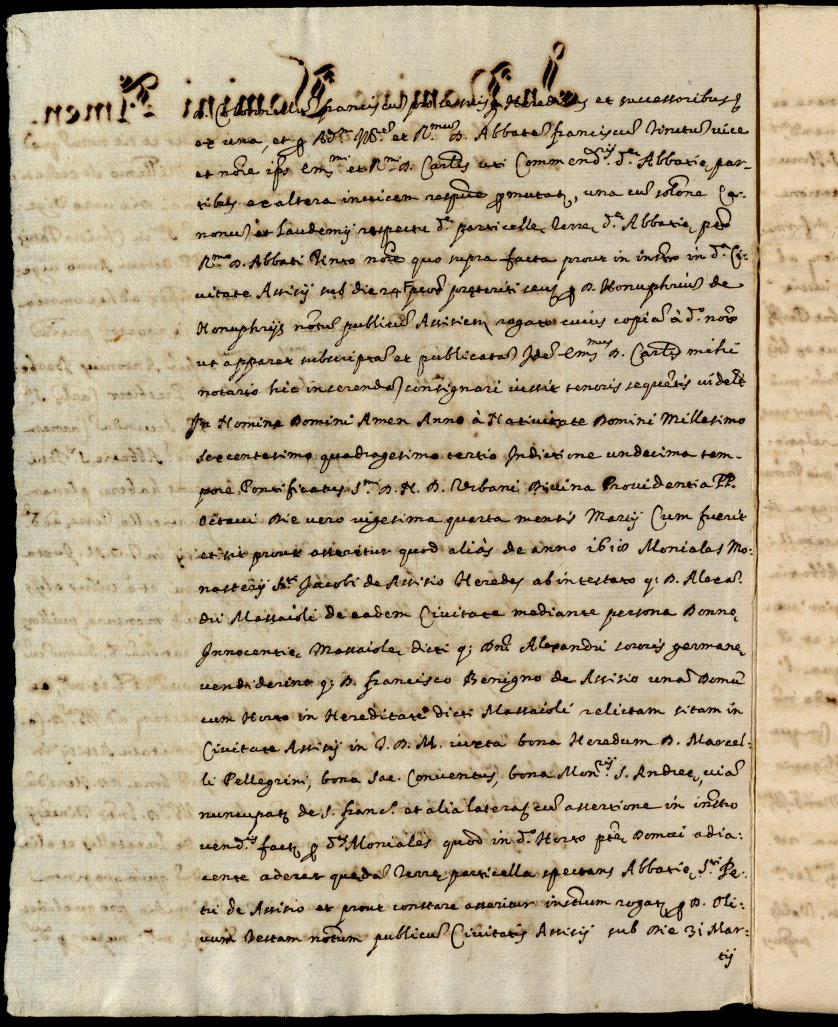 D. Franciscus pro se suisq. Heredibus et successoribus
ex una, et p Adm Ill.em et R.mum D. Abbatem franciscum Tinctum vice
et noīe ipsius Em.mi et R.mi D. Card.lis uti Commend.rij d.æ Abbatię, par-
tibus ex altera invicem respīve p̄mutatę, una cum solōne Ca-
nonum et Laudemij respectu d.æ particellę Terrę d.æ Abbatię, pto
R.mo D. Abbati Tinto noīe quo supra facta prout in instro in d.a Ci-
vitate Assisij sub die 24 pred. preteriti seu p D. Honuphrium de
Honuphrijs notum publicum Assisien rogato cuius copiam à d.o noto
ut apparet subscriptam et publicatam Idem Em.mus D. Card.lis mihi
notario hic inserendam consignari iussit tenoris sequentis videlt
In Nomine Domini Amen Anno à Nativitate Domini Millesimo
sexcentesimo quadragesimo tertio Indictione undecima tem-
pore Pontificatus S.mi D. N. D. Urbani Divina Providentia PP.
Octavi Die vero vigesima quarta mensis Martij Cum fuerit
et sit prout asseritur quod aliàs de anno 1618 Moniales Mo:
nasterij S.ti Jacobi de Assisio Heredes ab intestato q: D. Alexan.
dri Massaioli de eadem Civitate mediante persona Donnę
Innocentię Massaiolę dicti q: Dni Alexandri sororis germanę
vendiderint q: D. Francisco Benigno de Assisio unam Domum
cum Horto in Hereditate dicti Massaioli relictam sitam in
Civitate Assisij in P. D. M. iuxta bona Heredum D. Marcel-
li Pellegrini, bona Sac. Conventus, bona Mon.rij S. Andreę, viam
nuncupatę de S. Franc.o et alia latera, cum assertione in instro
vend.nis factę p d.as Moniales quod in d.o Horto ptę Domui adia:
cente aderat quędam Terrę particella spectans Abbatię S.ti Pe-
tri de Assisio et prout constare asseritur instum rogatę p D. Oli-
vum Testam notum publicum Civitatis Assisij sub Die 31 Mar-
tij